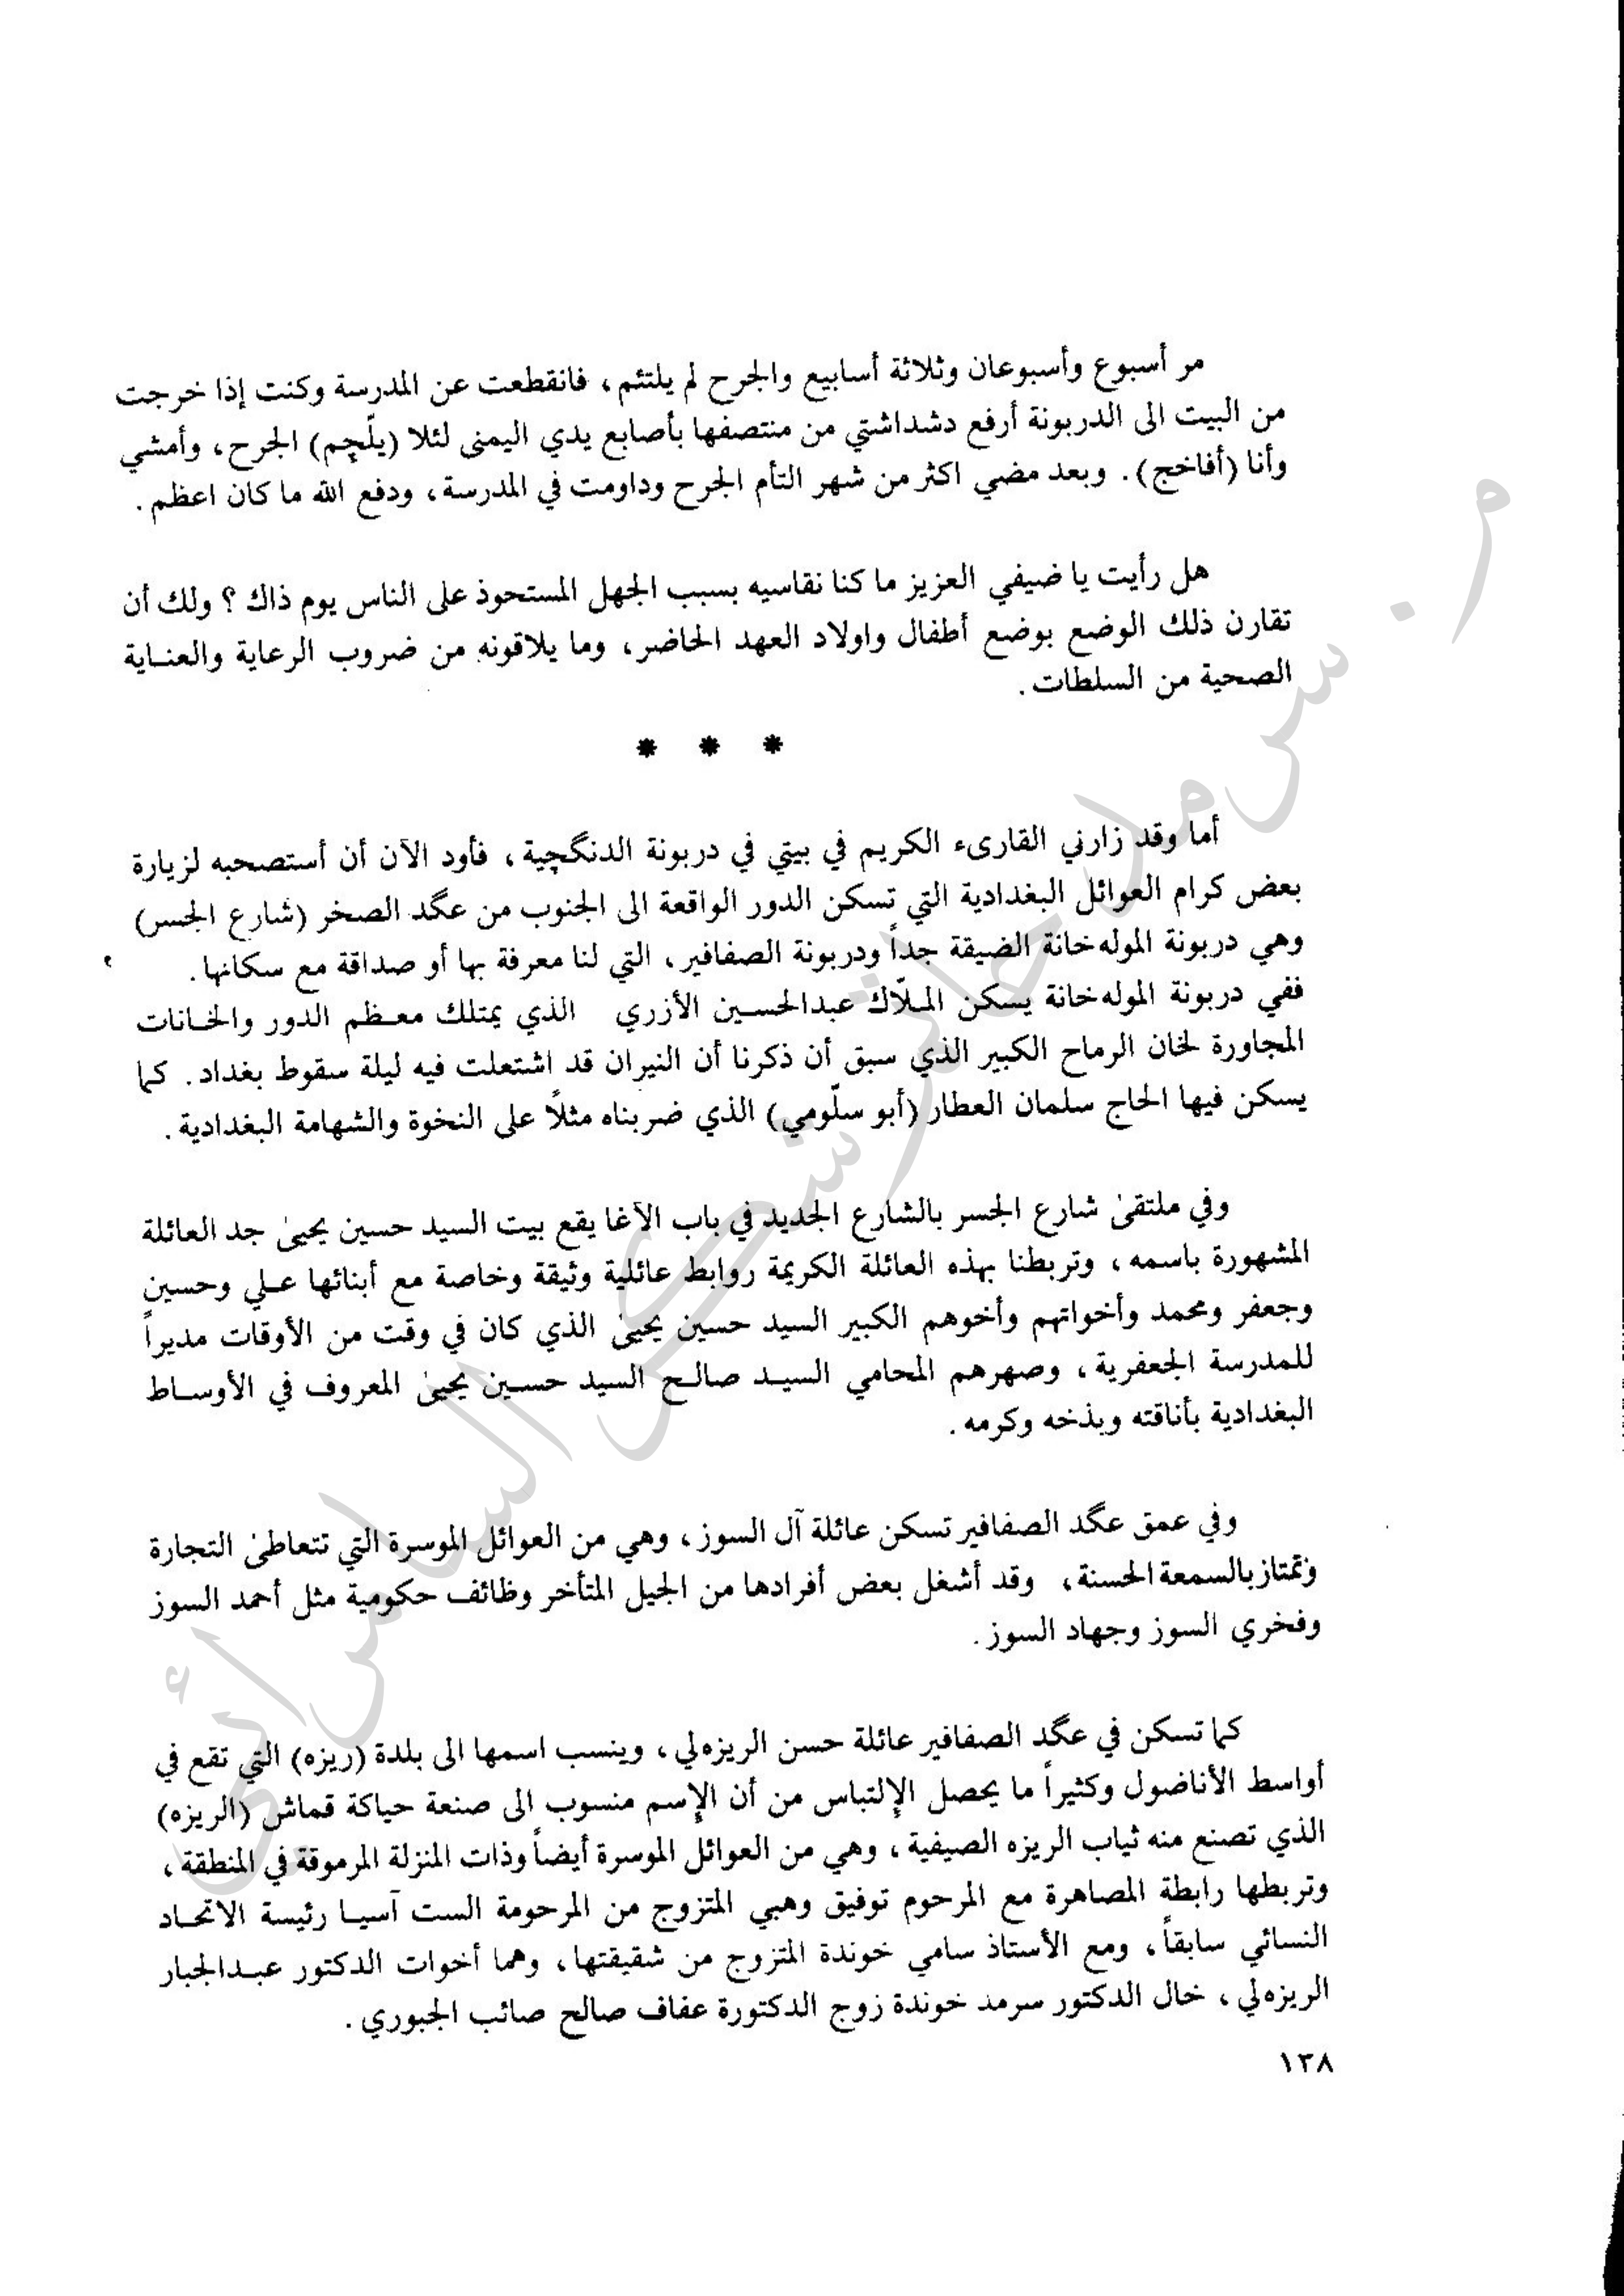 مر أسبوع وأسبوعان وثلاثة أسابيع والجرح لم يلتئم، فانقطعت عن المدرسة وكنت إذا خرجت
من البيت الى الدربونة أرفع دشداشتي من منتصفها بأصابع يدي اليمنى لئلا (يلّچم) الجرح، وأمشي
وأنا (أفاخج). وبعد مضي اكثر من شهر التأم الجرح وداومت في المدرسة، ودفع الله ما كان اعظم.
هل رأيت يا ضيفي العزيز ما كنا نقاسيه بسبب الجهل المستحوذ على الناس يوم ذاك ؟ ولك أن
تقارن ذلك الوضع بوضع أطفال واولاد العهد الحاضر، وما يلاقونه من ضروب الرعاية والعناية
الصحية من السلطات.
* * *
أما وقد زارني القارىء الكريم في بيتي في دربونة الدنگچية، فأود الآن أن أستصحبه لزيارة
بعض كرام العوائل البغدادية التي تسكن الدور الواقعة الى الجنوب من عگد الصخر (شارع الجسر)
وهي دربونة المولەخانة الضيقة جداً ودربونة الصفافير، التي لنا معرفة بها أو صداقة مع سكانها.
ففي دربونة المولەخانة يسكن الملّاك عبدالحسين الأزري الذي يمتلك معظم الدور والخانات
المجاورة لخان الرماح الكبير الذي سبق أن ذكرنا أن النيران قد اشتعلت فيه ليلة سقوط بغداد. كما
يسكن فيها الحاج سلمان العطار (أبو سلّومي) الذي ضربناه مثلاً على النخوة والشهامة البغدادية.
وفي ملتقىٰ شارع الجسر بالشارع الجديد في باب الآغا يقع بيت السيد حسين يحيىٰ جد العائلة
المشهورة باسمه، وتربطنا بهذه العائلة الكريمة روابط عائلية وثيقة وخاصة مع أبنائها علي وحسين
وجعفر ومحمد وأخواتهم وأخوهم الكبير السيد حسين يحيىٰ الذي كان في وقت من الأوقات مديراً
للمدرسة الجعفرية، وصهرهم المحامي السيد صالح السيد حسين يحيىٰ المعروف في الأوساط
البغدادية بأناقته وبذخه وكرمه.
وفي عمق عگد الصفافير تسكن عائلة آل السوز، وهي من العوائل الموسرة التي تتعاطىٰ التجارة
وتمتاز بالسمعة الحسنة، وقد أشغل بعض أفرادها من الجيل المتأخر وظائف حكومية مثل أحمد السوز
وفخري السوز وجهاد السوز.
كما تسكن في عگد الصفافير عائلة حسن الريزەلي، وينسب اسمها الى بلدة (ريزه) التي تقع في
أواسط الأناضول وكثيراً ما يحصل الإلتباس من أن الإسم منسوب الى صنعة حياكة قماش (الريزه)
الذي تصنع منه ثياب الريزه الصيفية، وهي من العوائل الموسرة أيضاً وذات المنزلة المرموقة في المنطقة،
وتربطها رابطة المصاهرة مع المرحوم توفيق وهبي المتزوج من المرحومة الست آسيا رئيسة الاتحاد
النسائي سابقاً، ومع الأستاذ سامي خوندة المتزوج من شقيقتها، وهما أخوات الدكتور عبدالجبار
الريزەلي، خال الدكتور سرمد خوندة زوج الدكتورة عفاف صالح صائب الجبوري.
١٣٨